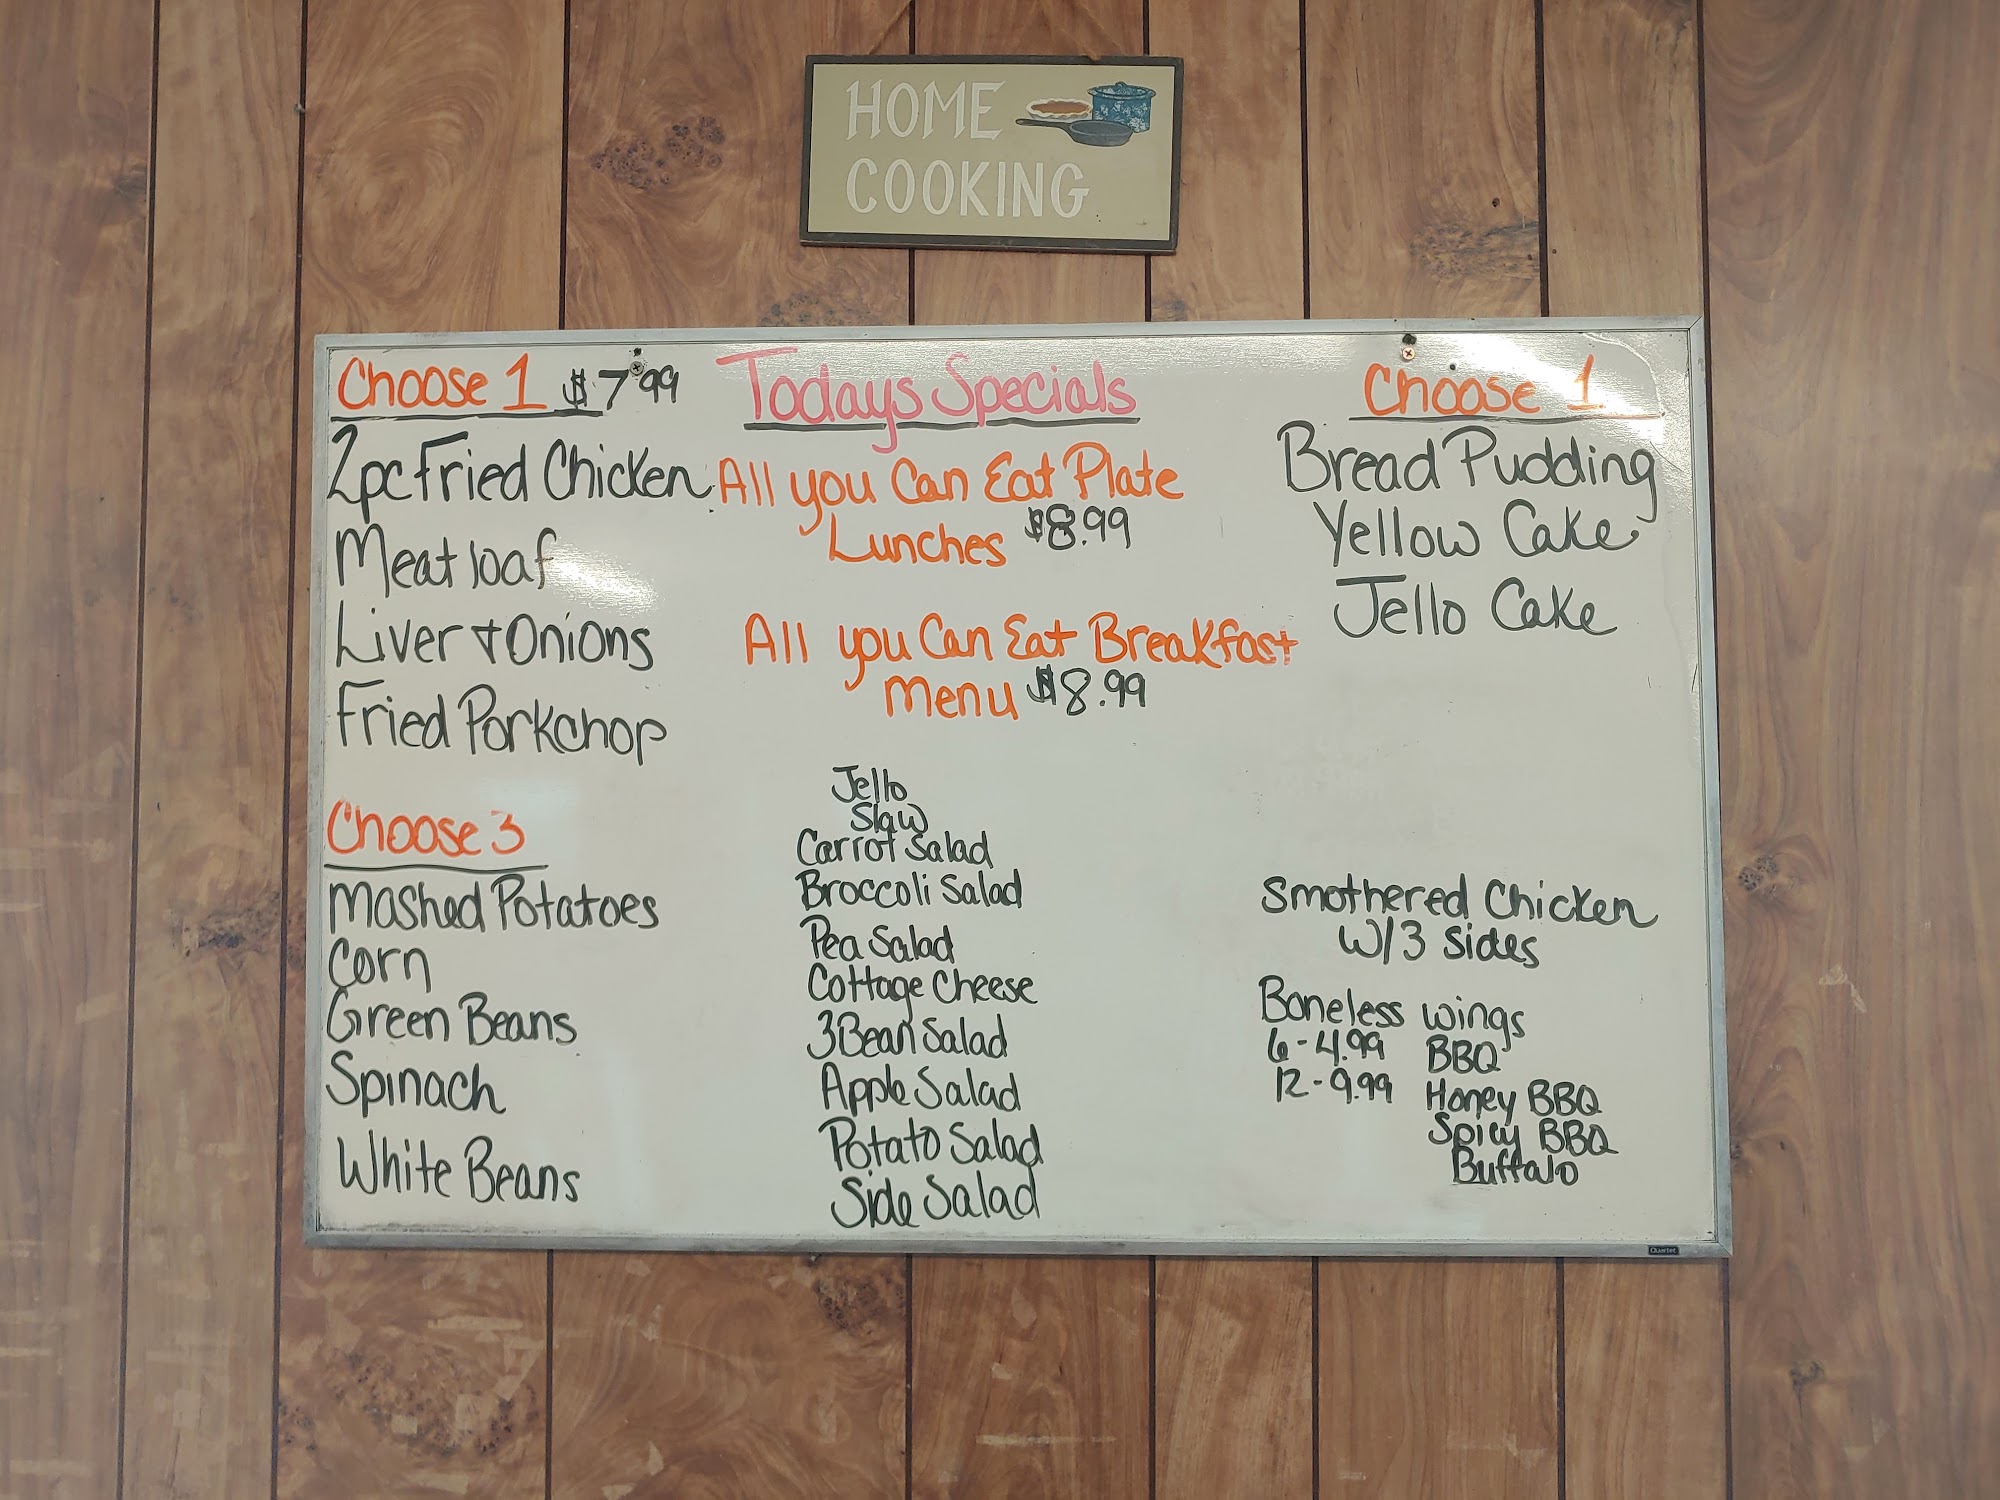 HOME
COOKING
Choose 1 $7.99
2pc Fried Chicken
Meatloaf
Liver & Onions
Fried Porkchop
Choose 3
Mashed Potatoes
Corn
Green Beans
Spinach
White Beans
Todays Specials
All you Can Eat Plate
Lunches $8.99
All you Can Eat Breakfast
Menu $8.99
Jello
Slaw
Carrot Salad
Broccoli Salad
Pea Salad
Cottage Cheese
3 Bean Salad
Apple Salad
Potato Salad
Side Salad
Choose 1
Bread Pudding
Yellow Cake
Jello Cake
Smothered Chicken
W/3 Sides
Boneless Wings
6-4.99 BBQ
12-9.99 Honey BBQ
Spicy BBQ
Buffalo
Quartet